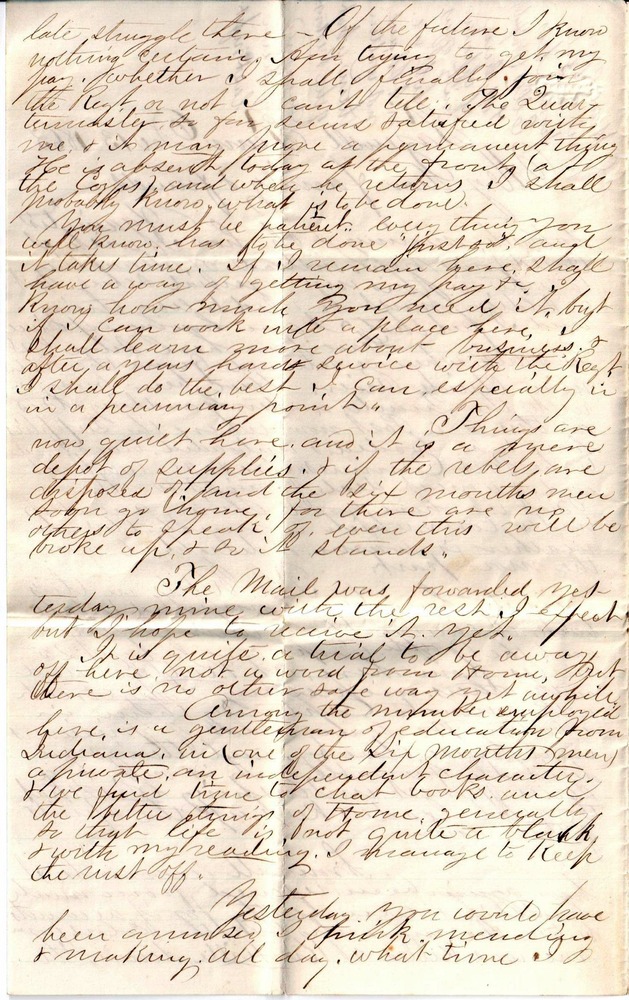 late struggle there – Of the future I know
nothing certain, Am trying to get my
pay. whether I shall finally join
the Regt or not I can't tell. The Quar-
termaster so far seems satisfied with
me, & it may prove a permanent thing
He is absent today at the front (at
the Corps) and when he returns I shall
probably know what is to be done.
You must be patient. every thing you
well know has to be done "just so", and
it takes time. If I remain here, shall
have a way of getting my pay &c. I
know how much you need it, but
if I can work into a place here, I
shall learn more about business. &
after a years hard service with the Regt
I shall do the best I can especially in
in a pecuniary point.
Things are
now quiet here. and it is a mere
depot of supplies. & if the rebels are
disposed of and the six months men
soon go home, for there are no
others to speak of, even this will be
broke up, & so it stands.
The Mail was forwarded yes-
terday mine with the rest I expect
but I hope to receive it yet.
It is quite a trial to be away
off here, not a word from Home, but
there is no other safe way yet awhile
Among the number employed
here is a gentleman of education from
Indiana, in (one of the Six Months men)
a private, an independent character.
& we find time to chat books and
the better things of Home generally
so that life is not quite a blank
& with my reading. I manage to keep
the rust off.
Yesterday you would have
been amused I think. mending
& making all day. what time I